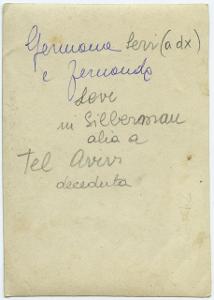 Germana Servi (a dx)
e Fernanda
Love
in Silberman
alia a
Tel Aviv
deceduta